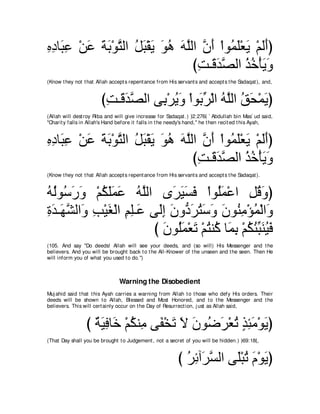 (أَلَمْ يَعْلَمُواْ أَنَّ اللَّهَ هُوَ يَقْبَلُ التَّوْبَةَ عَنْ عِبَادِهِ
وَيَأْخُذُ الصَّدَقَـتِ)
(Know they not that Allah accepts repentance from His servants and accepts the Sadaqat), and,
(يَمْحَقُ اللَّهُ الْرِّبَواْ وَيُرْبِى الصَّدَقَـتِ)
(Allah will destroy Riba and will give increase for Sadaqat.) [2:276]. `Abdullah bin Mas`ud said,
"Charity falls in Allah's Hand before it falls in the needy's hand,'' he then recited this Ayah,
(أَلَمْ يَعْلَمُواْ أَنَّ اللَّهَ هُوَ يَقْبَلُ التَّوْبَةَ عَنْ عِبَادِهِ
وَيَأْخُذُ الصَّدَقَـتِ)
(Know they not that Allah accepts repentance from His servants and accepts the Sadaqat).
(وَقُلِ اعْمَلُواْ فَسَيَرَى اللَّهُ عَمَلَكُمْ وَرَسُولُهُ
وَالْمُؤْمِنُونَ وَسَتُرَدُّونَ إِلَى عَـلِمِ الْغَيْبِ وَالشَّهَـدَةِ
فَيُنَبِّئُكُمْ بِمَا كُنتُمْ تَعْمَلُونَ )
(105. And say "Do deeds! Allah will see your deeds, and (so will) His Messenger and the
believers. And you will be brought back to the All-Knower of the unseen and the seen. Then He
will inform you of what you used to do.'')
Warning the Disobedient
Mujahid said that this Ayah carries a warning from Allah to those who defy His orders. Their
deeds will be shown to Allah, Blessed and Most Honored, and to the Messenger and the
believers. This will certainly occur on the Day of Resurrection, just as Allah said,
(يَوْمَئِذٍ تُعْرَضُونَ لاَ تَخْفَى مِنكُمْ خَافِيَةٌ )
(That Day shall you be brought to Judgement, not a secret of you will be hidden.) [69:18],
(يَوْمَ تُبْلَى السَّرَآئِرُ )